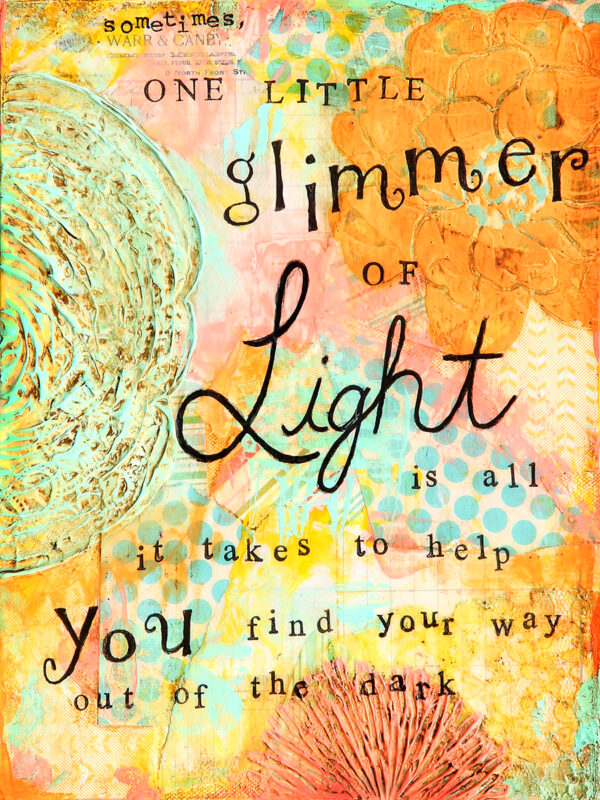 sometimes,
WARR & CANBY
ONE LITTLE
glimmer
OF
Light
is all
it takes to help
you find your way
out of the dark